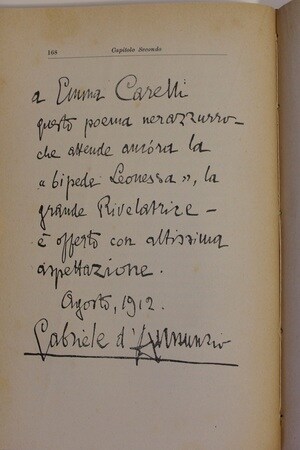 168 Capitolo Secondo
a Emma Carelli
questo poema nerazzurro –
che attende ancóra la
« bipede Leonessa », la
grande Rivelatrice –
è offerto con altissima
aspettazione.
Agosto, 1912.
Gabriele d'Annunzio